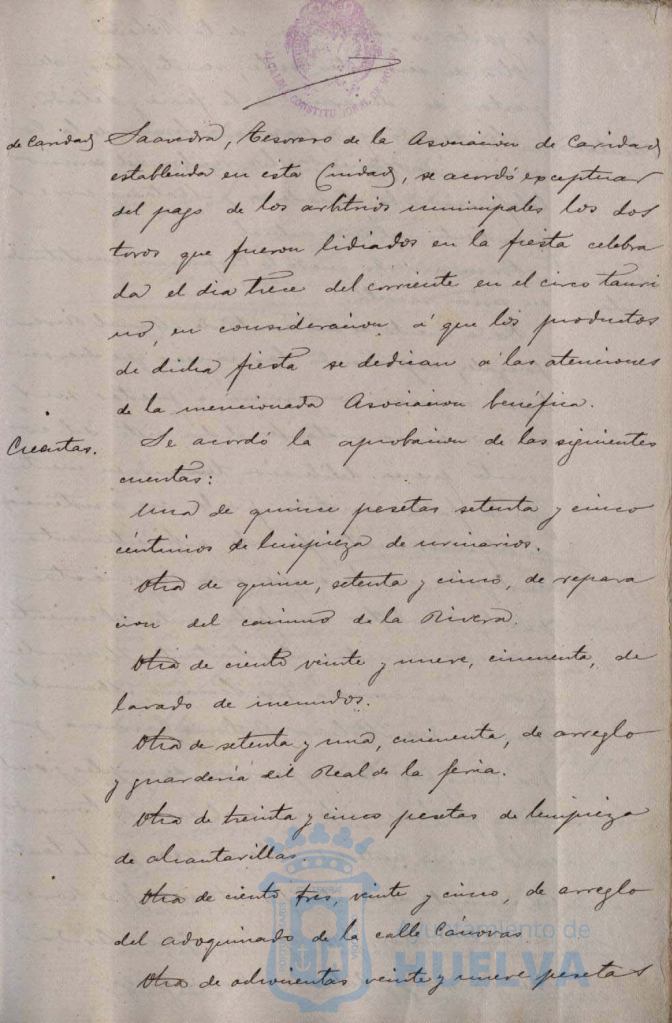 ALCALDIA CONSTITUCIONAL DE HUELVA
de Caridad Saavedra, Tesorero de la Asociacion de Caridad
establecida en esta Ciudad, se acordó exceptuar
del pago de los arbitrios municipales los dos
toros que fueron lidiados en la fiesta celebra
da el dia trece del corriente en el circo tauri
no, en consideracion á que los productos
de dicha fiesta se dedican á las atenciones
de la mencionada Asociacion benéfica.
Cuentas. Se acordó la aprobacion de las siguientes
cuentas:
Una de quince pesetas setenta y cinco
céntimos de limpieza de urinarios.
Otra de quince, setenta y cinco, de repara
cion del camino de la Rivera.
Otra de ciento veinte y nueve, cincuenta, de
lavado de menudos.
Otra de setenta y una, cincuenta, de arreglo
y guardería del Real de la feria.
Otra de treinta y cinco pesetas de limpieza
de alcantarillas.
Otra de ciento tres, veinte y cinco, de arreglo
del adoquinado de la calle Cánovas.
Otra de doscientas veinte y nueve pesetas
Ayuntamiento de
HUELVA